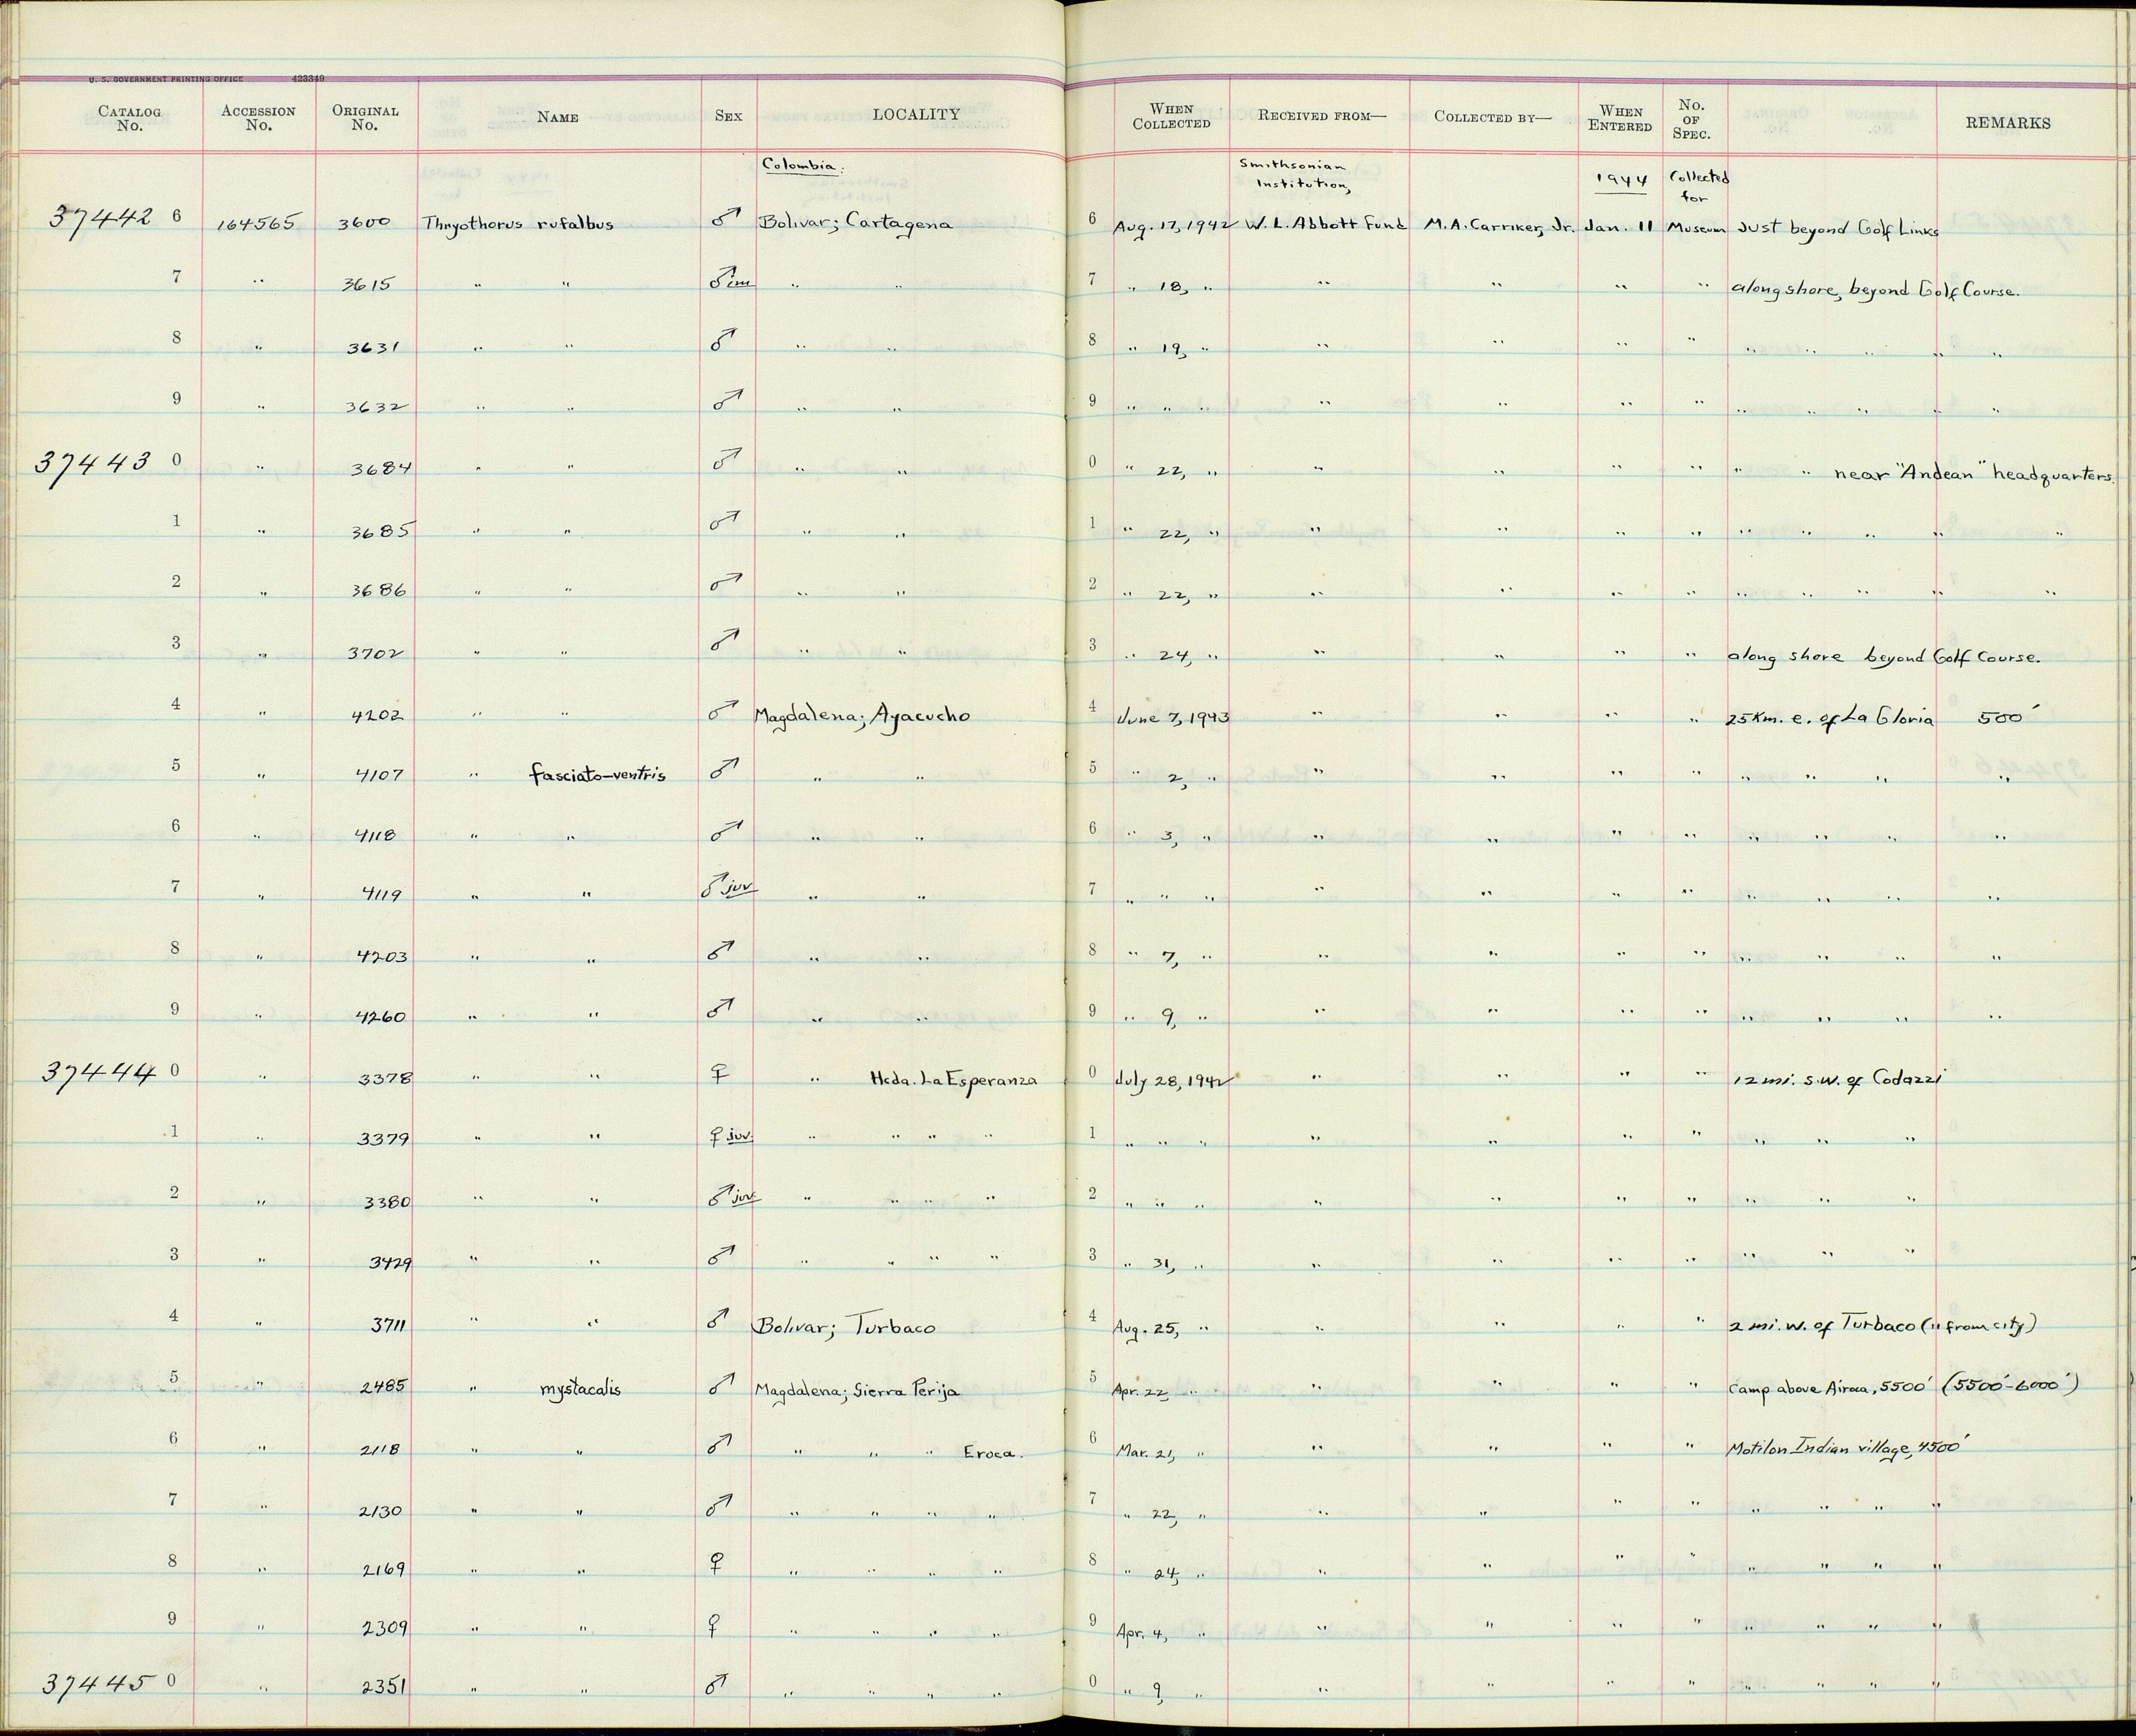 U. S. GOVERNMENT PRINTING OFFICE 423349
CATALOG No. ACCESSION No. ORIGINAL No. NAME SEX LOCALITY WHEN COLLECTED RECEIVED FROM— COLLECTED BY— WHEN ENTERED No. OF SPEC. REMARKS
Colombia: Smithsonian Institution, 1944 Collected for
37442 6 164565 3600 Thryothorus rufalbus ♂ Bolivar; Cartagena 6 Aug. 17, 1942 W. L. Abbott Fund M. A. Carriker, Jr. Jan. 11 Museum Just beyond Golf Links
7 " 3615 " " ♂ im " " 7 " 18, " " " " " along shore, beyond Golf Course.
8 " 3631 " " ♂ " " 8 " 19, " " " " " " " " " "
9 " 3632 " " ♂ " " 9 " " " " " " " " " " " "
37443 0 " 3684 " " ♂ " " 0 " 22, " " " " " " " near "Andean" headquarters.
1 " 3685 " " ♂ " " 1 " 22, " " " " " " " " " "
2 " 3686 " " ♂ " " 2 " 22, " " " " " " " " " "
3 " 3702 " " ♂ " " 3 " 24, " " " " " along shore beyond Golf Course.
4 " 4202 " " ♂ Magdalena; Ayacucho 4 June 7, 1943 " " " " 25 Km. e. of La Gloria 500'
5 " 4107 " fasciato-ventris ♂ " " 5 " 2, " " " " " " " " "
6 " 4118 " " ♂ " " 6 " 3, " " " " " " " " "
7 " 4119 " " ♂ juv " " 7 " " " " " " " " " " "
8 " 4203 " " ♂ " " 8 " 7, " " " " " " " " "
9 " 4260 " " ♂ " " 9 " 9, " " " " " " " " "
37444 0 " 3378 " " ♀ " Hcda. La Esperanza 0 July 28, 1942 " " " " 12 mi. s.w. of Codazzi
1 " 3379 " " ♀ juv. " " " " 1 " " " " " " " " " "
2 " 3380 " " ♂ juv. " " " " 2 " " " " " " " " " "
3 " 3429 " " ♂ " " " " 3 " 31, " " " " " " " "
4 " 3711 " " ♂ Bolivar; Turbaco 4 Aug. 25, " " " " " 2 mi. w. of Turbaco (" from city)
5 " 2485 " mystacalis ♂ Magdalena; Sierra Perija 5 Apr. 22 " " " " " Camp above Airoca, 5500' (5500'-6000')
6 " 2118 " " ♂ " " " Eroca. 6 Mar. 21, " " " " " Motilon Indian village, 4500'
7 " 2130 " " ♂ " " " " 7 " 22, " " " " " " " " "
8 " 2169 " " ♀ " " " " 8 " 24, " " " " " " " " "
9 " 2309 " " ♀ " " " " 9 Apr. 4, " " " " " " " " "
37445 0 " 2351 " " ♂ " " " " 0 " 9, " " " " " " " " "